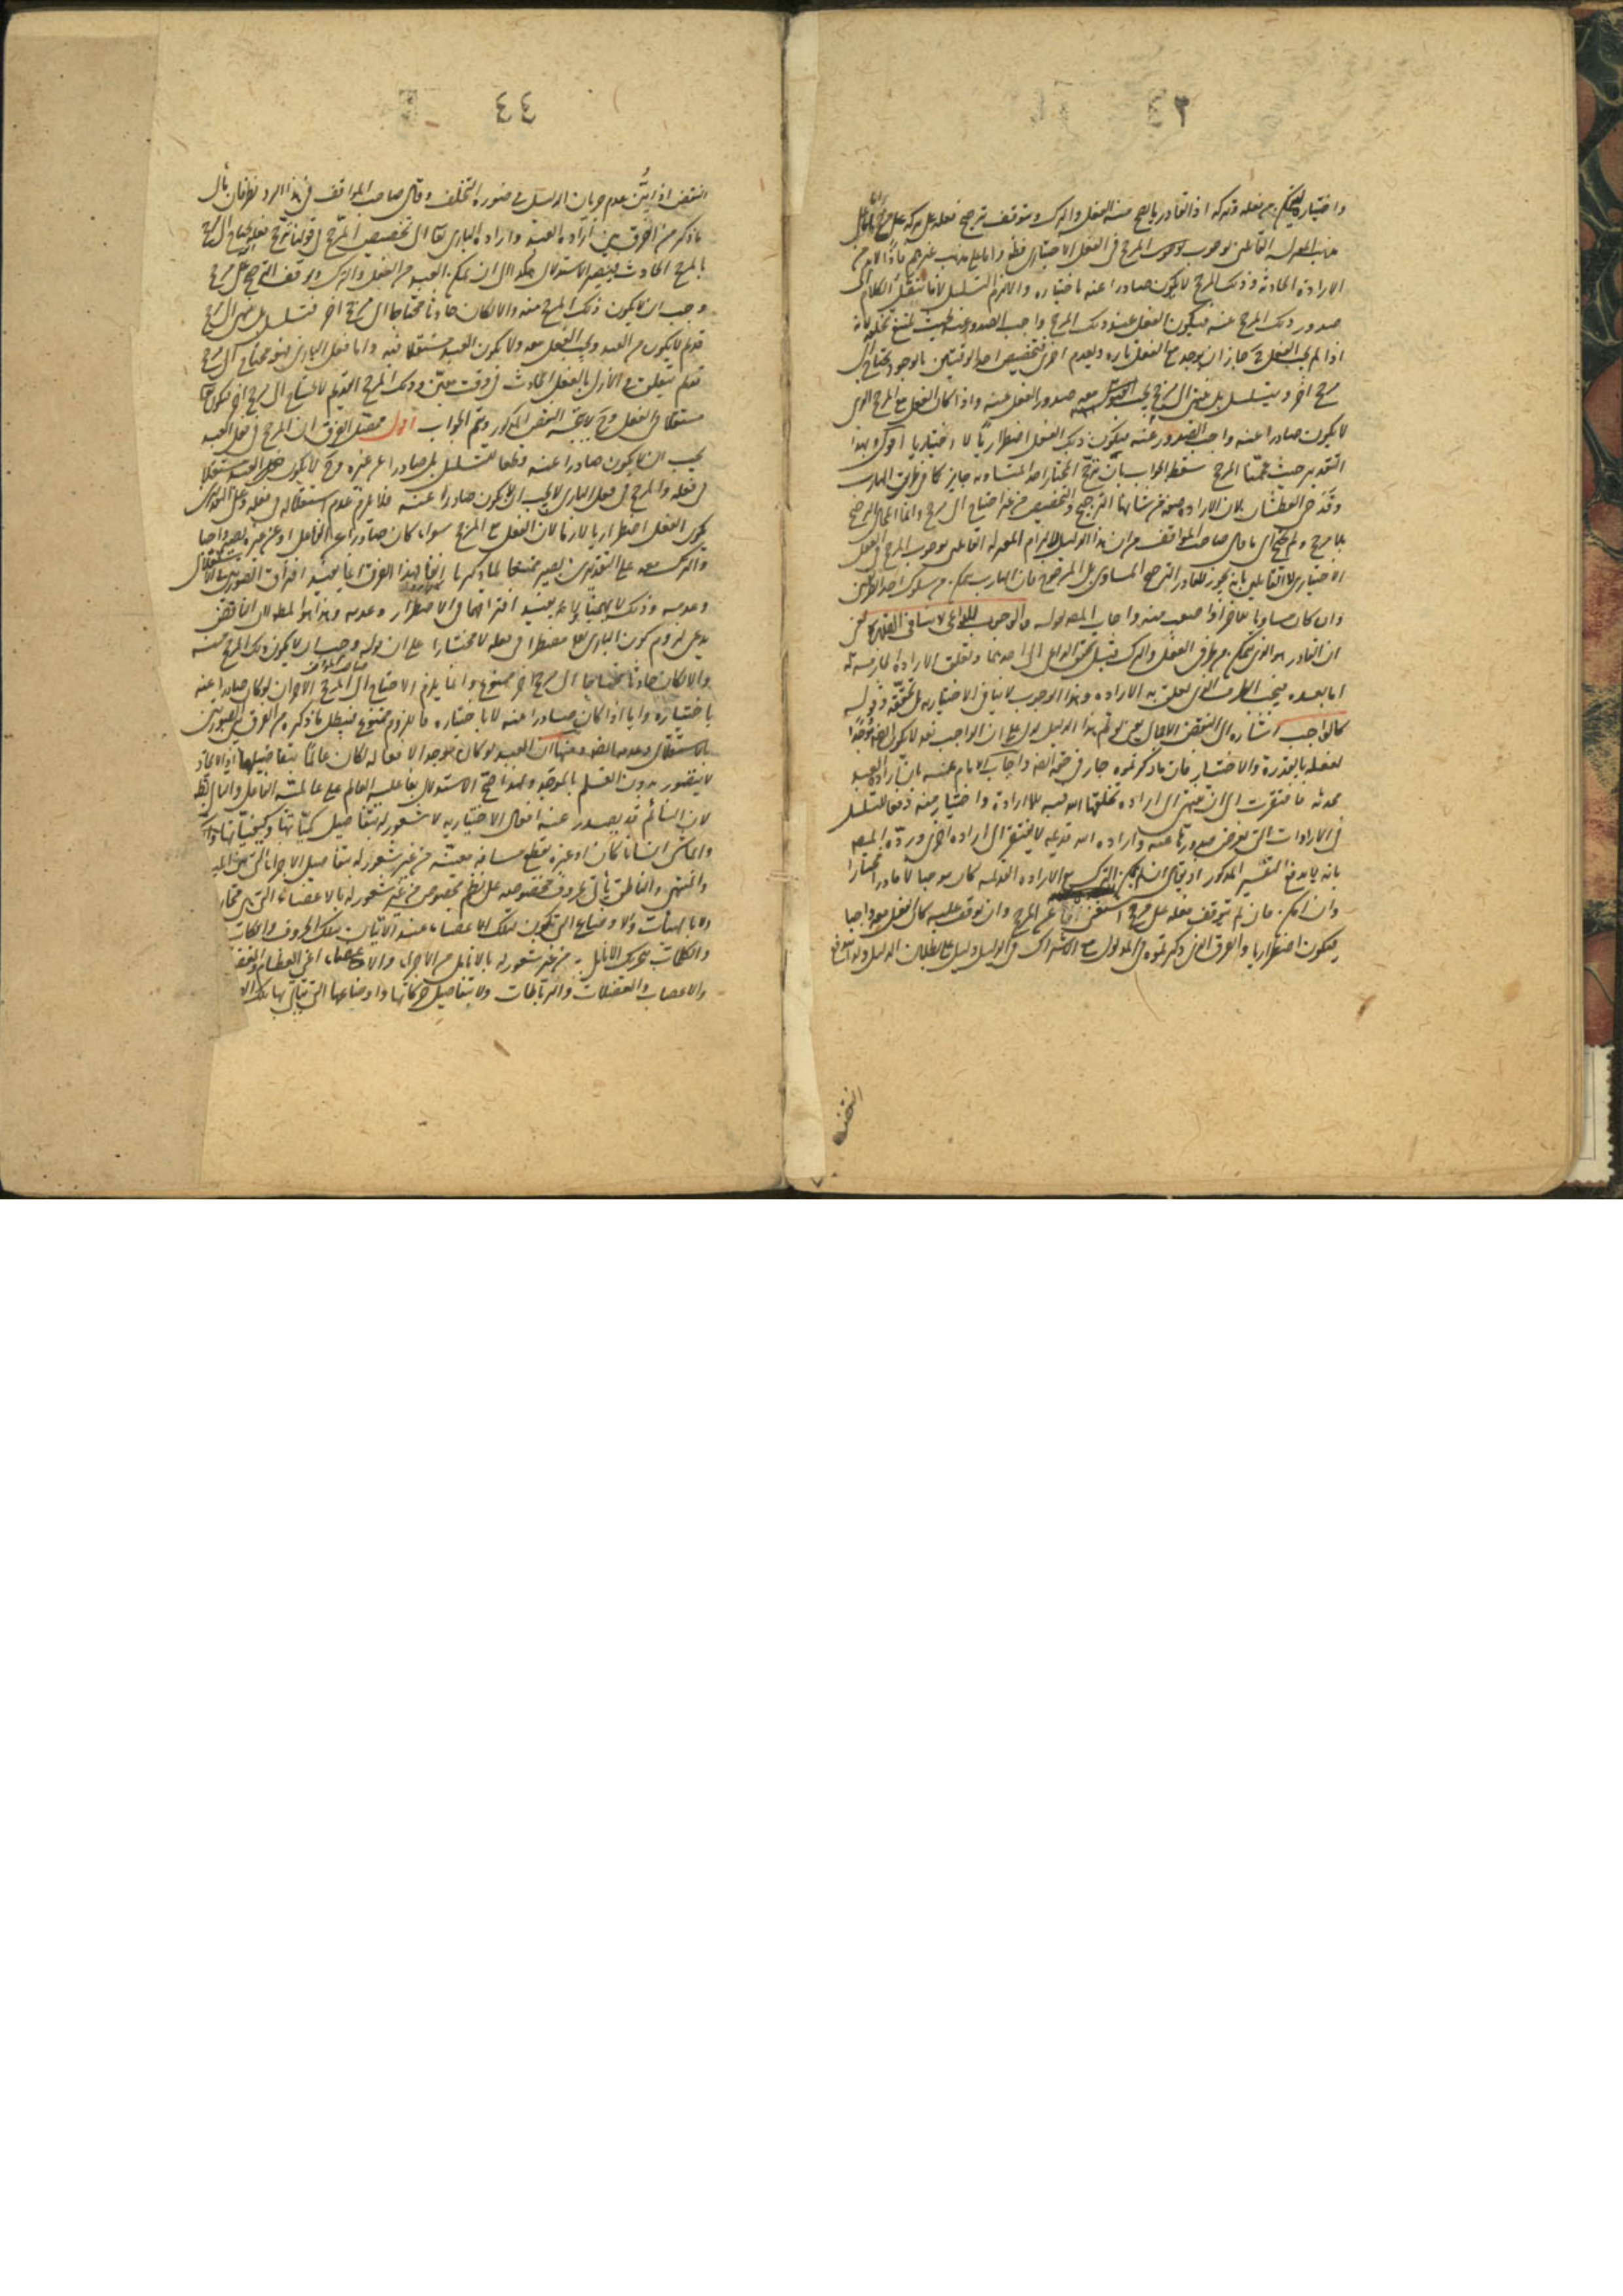 ٤٣
واختياره لتمكن من فعله وتركه اذ القادر ما يصح منه الفعل والترك ويتوقف ترجيح فعله على تركه على مرجح
مذهب المعتزلة القائلين بوجوب المرجح في الفعل الاختياري فظ واما على مذهب غيرهم فلانه لا بد من
الارادة الحادثة وذلك المرجح لا يكون صادرا عنه باختياره والا لزم التسلسل لانا ننقل الكلام الى
صدور ذلك المرجح عنه فيكون الفعل عند ذلك المرجح واجب الصدور عنه بحيث يمتنع تخلفه لانه
اذا لم يجب الفعل ح جاز ان يوجد مع الفعل تارة ويعدم اخرى فتخصيص احد الوقتين بالوجود يحتاج الى
مرجح اخر ويتسلسل بل ينتهي الى مرجح يجب معه صدور الفعل عنه واذا كان الفعل مع المرجح الذي
لا يكون صادرا عنه واجب الصدور عنه فيكون ذلك الفعل اضطراريا لا اختياريا اقول وبهذا
التقدير حيث عممنا المرجح سقط الجواب بان ترجيح المختار احد المتساويين جايز كما في طريق الهارب
وقدحي العطشان لان الارادة صفة من شانها الترجيح والتخصيص من غير احتياج الى مرجح وانما المحال الترجح
بلا مرجح ولم يحتج الى ما قال صاحب المواقف من ان هذا الدليل لالزام المعتزلة القائلين بوجوب المرجح في الفعل
الاختياري لا القائلين بانه يجوز للقادر الترجيح المساوي بل المرجوح فان الهارب يتمكن من سلوك احد الطريقين
وان كان مساويا للاخر او اصعب منه واجاب المص بقوله والوجوب للداعي لا ينافي القدرة
ان القادر هو الذي يتمكن من طرفي الفعل والترك قبل تحقق الداعي الى احدهما وتعلق الارادة الجازمة به
اما بعده فيجب الطرف الذي تعلق به الارادة وهذا الوجوب لا ينافي الاختيار بل يحققه وقوله
كالواجب اشارة الى النقض الاجمالي
لفعله بالقدرة والاختيار فان ما ذكرتموه جار في حقه ايضا واجاب الامام عنه بان ارادة العبد
محدثة فافتقرت الى ان ينتهي الى ارادة يخلقها الله فيه بلا ارادة واختيار منه دفعا للتسلسل
في الارادات التي يفرض صدورها عنه وارادة الله قديمة لا يفتقر الى ارادة اخرى ورده المص
بانه لا يدفع التقسيم المذكور اذ يقال ان لم يمكن الترك مع الارادة القديمة كان موجبا لا قادرا مختارا
وان امكن فان لم يتوقف فعله على مرجح استغنى ايضا عن المرجح وان توقف عليه كان الفعل معه واجبا
فيكون اضطراريا والفرق الذي ذكرتموه في المدلول مع الاشتراك في الدليل دليل على بطلان الدليل
النقض
٤٤
النقض اذا بين عدم جريان الدليل في صورة التخلف وقال صاحب المواقف في هذا الرد نظر فان مآل
ما ذكر من الفرق بين ارادة العبد وارادة الباري تعالى الى تخصيص المرجح في قولنا ترجيح فعله يحتاج الى مرجح
بالمرجح الحادث فيصير الاستدلال هكذا ان تمكن العبد من الفعل والترك وتوقف الترجيح على مرجح
وجب ان لا يكون ذلك المرجح منه والا لكان حادثا محتاجا الى مرجح اخر فتسلسل بل ينتهي الى مرجح
قديم لا يكون من العبد ويجب الفعل معه ولا يكون العبد مستقلا فيه واما فعل الباري فهو محتاج الى مرجح
قديم يتعلق في الازل بالفعل الحادث في وقت معين وذلك المرجح القديم لا يحتاج الى مرجح اخر فيكون تعالى
مستقلا في الفعل وح لا يتجه النقض المذكور ويتم الجواب اقول محصل الفرق ان المرجح في فعل العبد
يجب ان لا يكون صادرا عنه قطعا للتسلسل بل صادرا عن غيره وح لا يكون العبد مستقلا
في فعله والمرجح في فعل الباري لا يجب ان لا يكون صادرا عنه فلا يلزم عدم استقلاله في فعله
يكون الفعل اضطراريا لازما لان الفعل مع المرجح سواء كان صادرا عن الفاعل او عن غيره يصير واجبا
والترك معه على التقديرين يصير ممتنعا كما ذكرنا انفا فهذا الفرق انما يفيد افتراق الصورتين في الاستقلال
وعدمه وذلك لا يهمنا ولا يفيد افتراقهما في الاضطرار وعدمه وهذا هو المطلوب لان الناقض
يدعي لزوم كون الباري تعالى مضطرا في فعله لا مختارا على ان قوله وجب ان لا يكون ذلك المرجح منه
والا لكان حادثا محتاجا الى مرجح اخر ممنوع وانما يلزم الاحتياج الى المرجح الاخر ان لو كان صادرا عنه
باختياره واما اذا كان صادرا عنه لا باختياره فاللزوم ممنوع فبطل ما ذكره من الفرق بين الصورتين
بالاستقلال وعدمه ايضا ومنها ان العبد لو كان موجدا لافعاله لكان عالما بتفاصيلها اذ الايجاد
لا يتصور بدون العلم بالموجد ولهذا صح الاستدلال بفاعلية العالم على عالمية الفاعل والتالي بط
لان النائم قد يصدر عنه افعال اختيارية لا شعور له بتفاصيل كمياتها وكيفياتها
والماشي انسانا كان او غيره يقطع مسافة معينة من غير شعور له بتفاصيل الاجزاء التي بين المبدأ
والمنتهى والناطق ياتي بحروف مخصوصة على نظم مخصوص من غير شعور له بالاعضاء التي هي مخارجها
ولا بالهيئات والاوضاع التي تكون لتلك الاعضاء عند الاتيان بتلك الحروف والكاتب
والكلمات بتحريك الانامل من غير شعور له بالانامل من الاجزاء والاعضاء اعني العظام والغضاريف
والاعصاب والعضلات والرباطات ولا بتفاصيل حركاتها واوضاعها التي يتأتى بها تلك